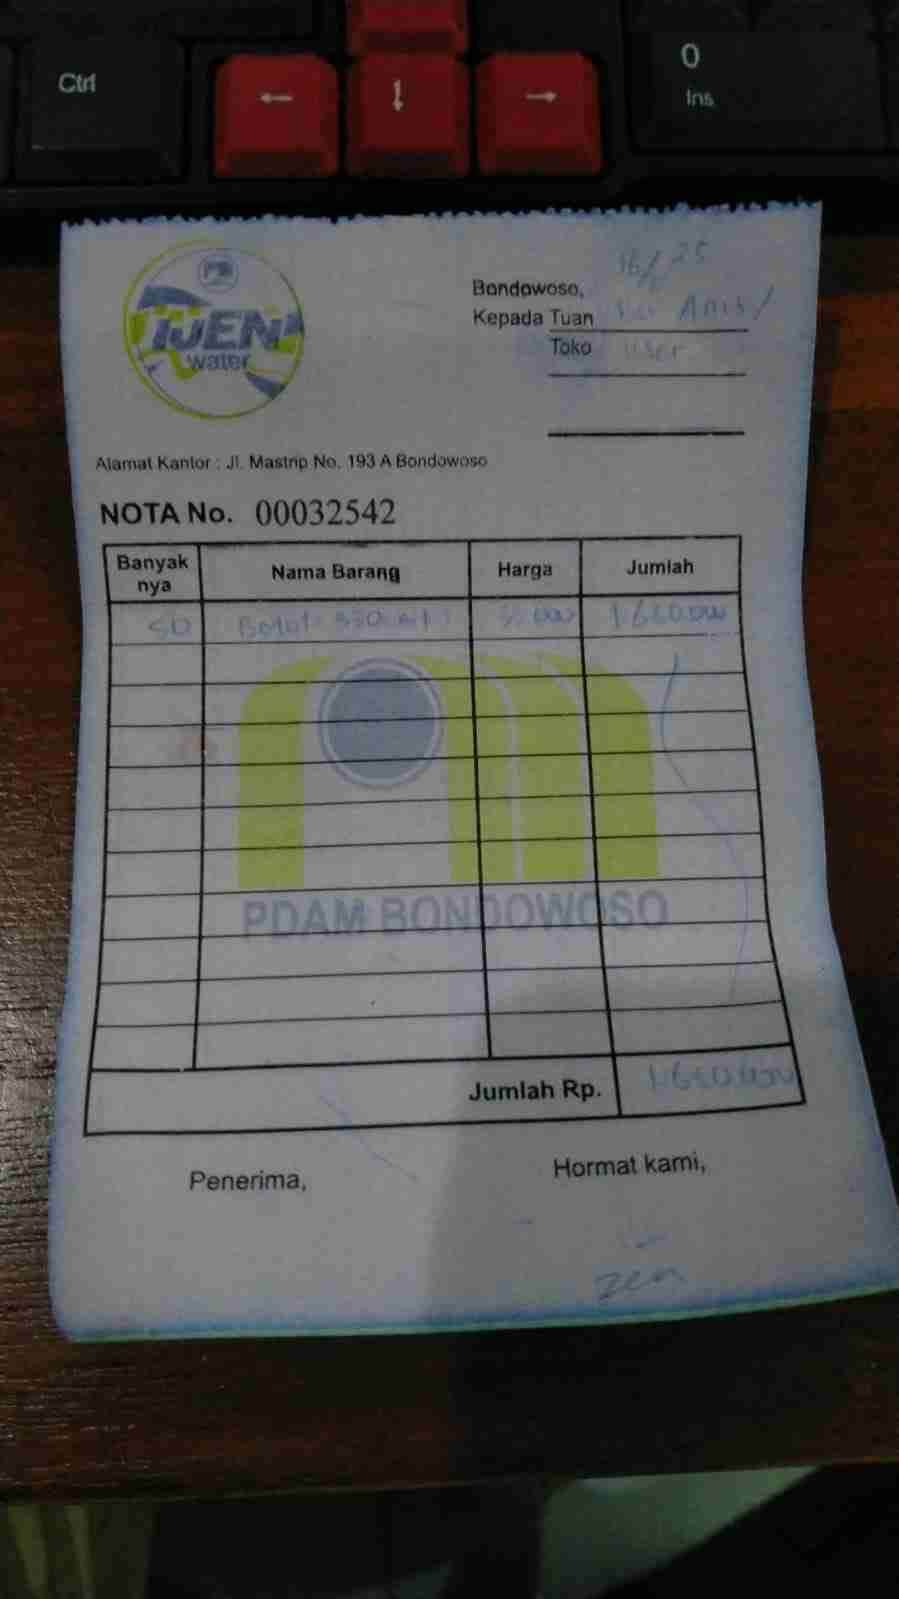 Ctrl
←
↓
→
0
Ins
IJEN
water
Bondowoso, 16/ 25
Kepada Tuan Anis/
Toko User
Alamat Kantor : Jl. Mastrip No. 193 A Bondowoso
NOTA No. 00032542
Banyak nya Nama Barang Harga Jumlah
50 Botol 330 ml 33.000 1.650.000
PDAM BONDOWOSO
Jumlah Rp. 1.650.000
Penerima, Hormat kami,
Zen